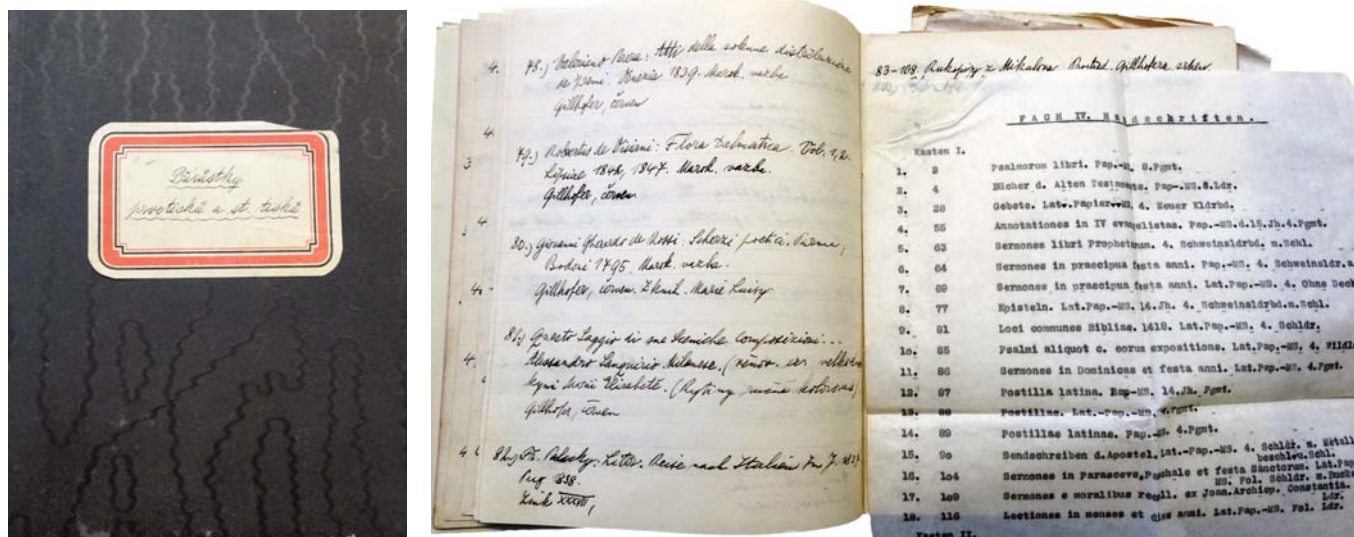 Přírůstky
prvotisků a st. tisků
4. 78.) Valeriano : Atti della solenne distribuzione
de Premi. Venezia 1839. Marok. vazba.
Gillhofer, červen
4.
3 79.) Robertus de Visiani: Flora Dalmatica. Vol. 1, 2.
Lipsiae 1842, 1847. Marok. vazba.
Gillhofer, červen
4
80.) Giovanni Gherardo de Rossi: Scherzi poetici. Parma,
Bodoni 1795. Marok. vazba.
4. Gillhofer, červen. Z knih. Marie Luisy
81.) Questo Saggio di sue sceniche composizioni...
4. Alessandro Sanquirico Milanese. (věnov. velko
kyni Elisabetě. (Rytiny ručně kolorov
Gillhofer, červen
4 82.) Fr. Palacky: Liter. Reise nach Italien im J. 1837
Prag 838.
83-108. Rukopisy z Mikulova. Prostřed. Gillhofera srpen.
FACH IV. Handschriften.
Kasten I.
1. 2 Psalmorum libri. Pap.-M. 8.Pgmt.
2. 4 Bücher d. Alten Testments. Pap-.MS.8.Ldr.
3. 28 Gebete. Lat.Papier-MS, 4. Neuer Kldrbd.
4. 55 Annotationes in IV evangelistas. Pap.-MS.d.15.Jh.4.Pgmt.
5. 63 Sermones libri Prophetarum. 4. Schweinsldrbd. m.Schl.
6. 64 Sermones in praecipua festa anni. Pap.-MS. 4. Schweinsldr.m
7. 69 Sermones in praecipua festa anni. Lat.Pap.-MS. 4. Ohne Deck
8. 77 Episteln. Lat.Pap.-MS. 14.Jh. 4. Schweinsldrbd.m.Schl.
9. 81 Loci communes Bibliae. 1418. Lat.Pap.-MS. 4. Schldr.
10. 85 Psalmi aliquot c. eorum expositione. Lat.Pap.-MS. 4. Wildl
11. 86 Sermones in Dominicas et festa anni. Lat.Pap.-MS. 4.Pgmt.
12. 87 Postilla latina. Rap-MS. 14.Jh. Pgmt.
13. 88 Postillae. Lat.-Pap.-MS, 4.Pgmt.
14. 89 Postillae latinae. Pap.-MS. 4.Pgmt.
15. 9o Sendschreiben d.Apostel. Lat.-Pap.-MS. 4. Schldr. m. Metall
beschl.u.Schl.
16. 1o4 Sermones in Parasceve, Paschale et festa Sanctorum. Lat.Pap
MS. Fol. Schldr. m.Bucke
17. 1o9 Sermones e moralibus recoll. ex Joan.Archiep. Constantin.
Ldr.
18. 116 Lectiones in menses et dies anni. Lat.Pap.-MS. Fol. Ldr.
Kasten II.